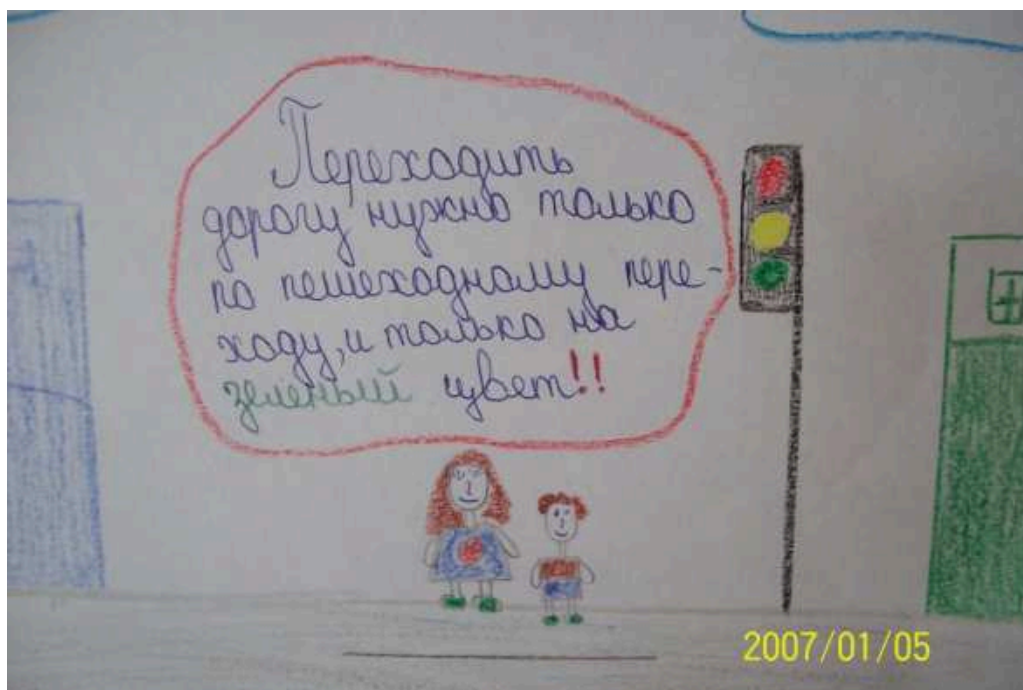 Переходить
дорогу нужно только
по пешеходному пере-
ходу, и только на
зеленый цвет!!
2007/01/05